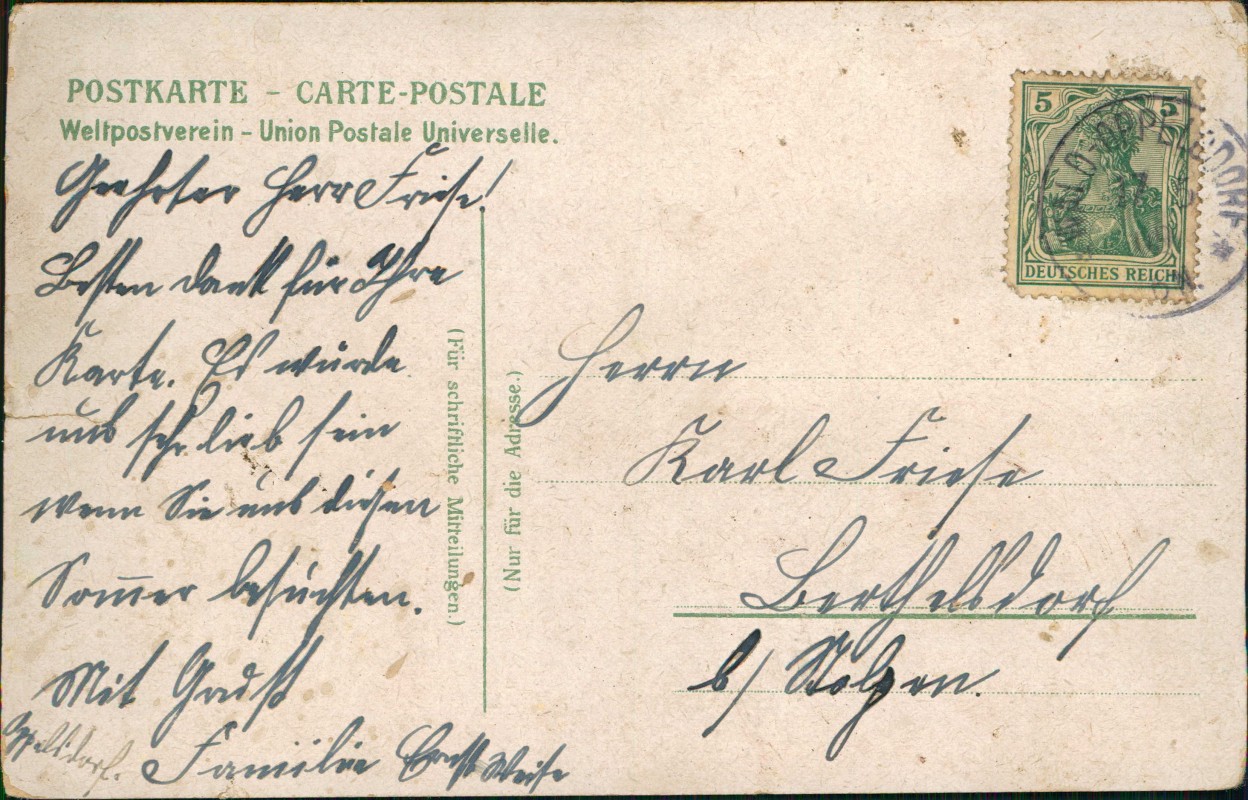 POSTKARTE – CARTE-POSTALE
Weltpostverein – Union Postale Universelle.
Geehrter Herr Friese!
Besten Dank für Ihre
Karte. Es würde
uns sehr lieb sein
wenn Sie uns diesen
Som̅er besuchten.
Mit Gruß
Familie Ernst Weise
(Für schriftliche Mitteilungen.)
(Nur für die Adresse.)
5 5
DEUTSCHES REICH
Herrn
Karl Friese
Berthelsdorf
b/ Stolpen.